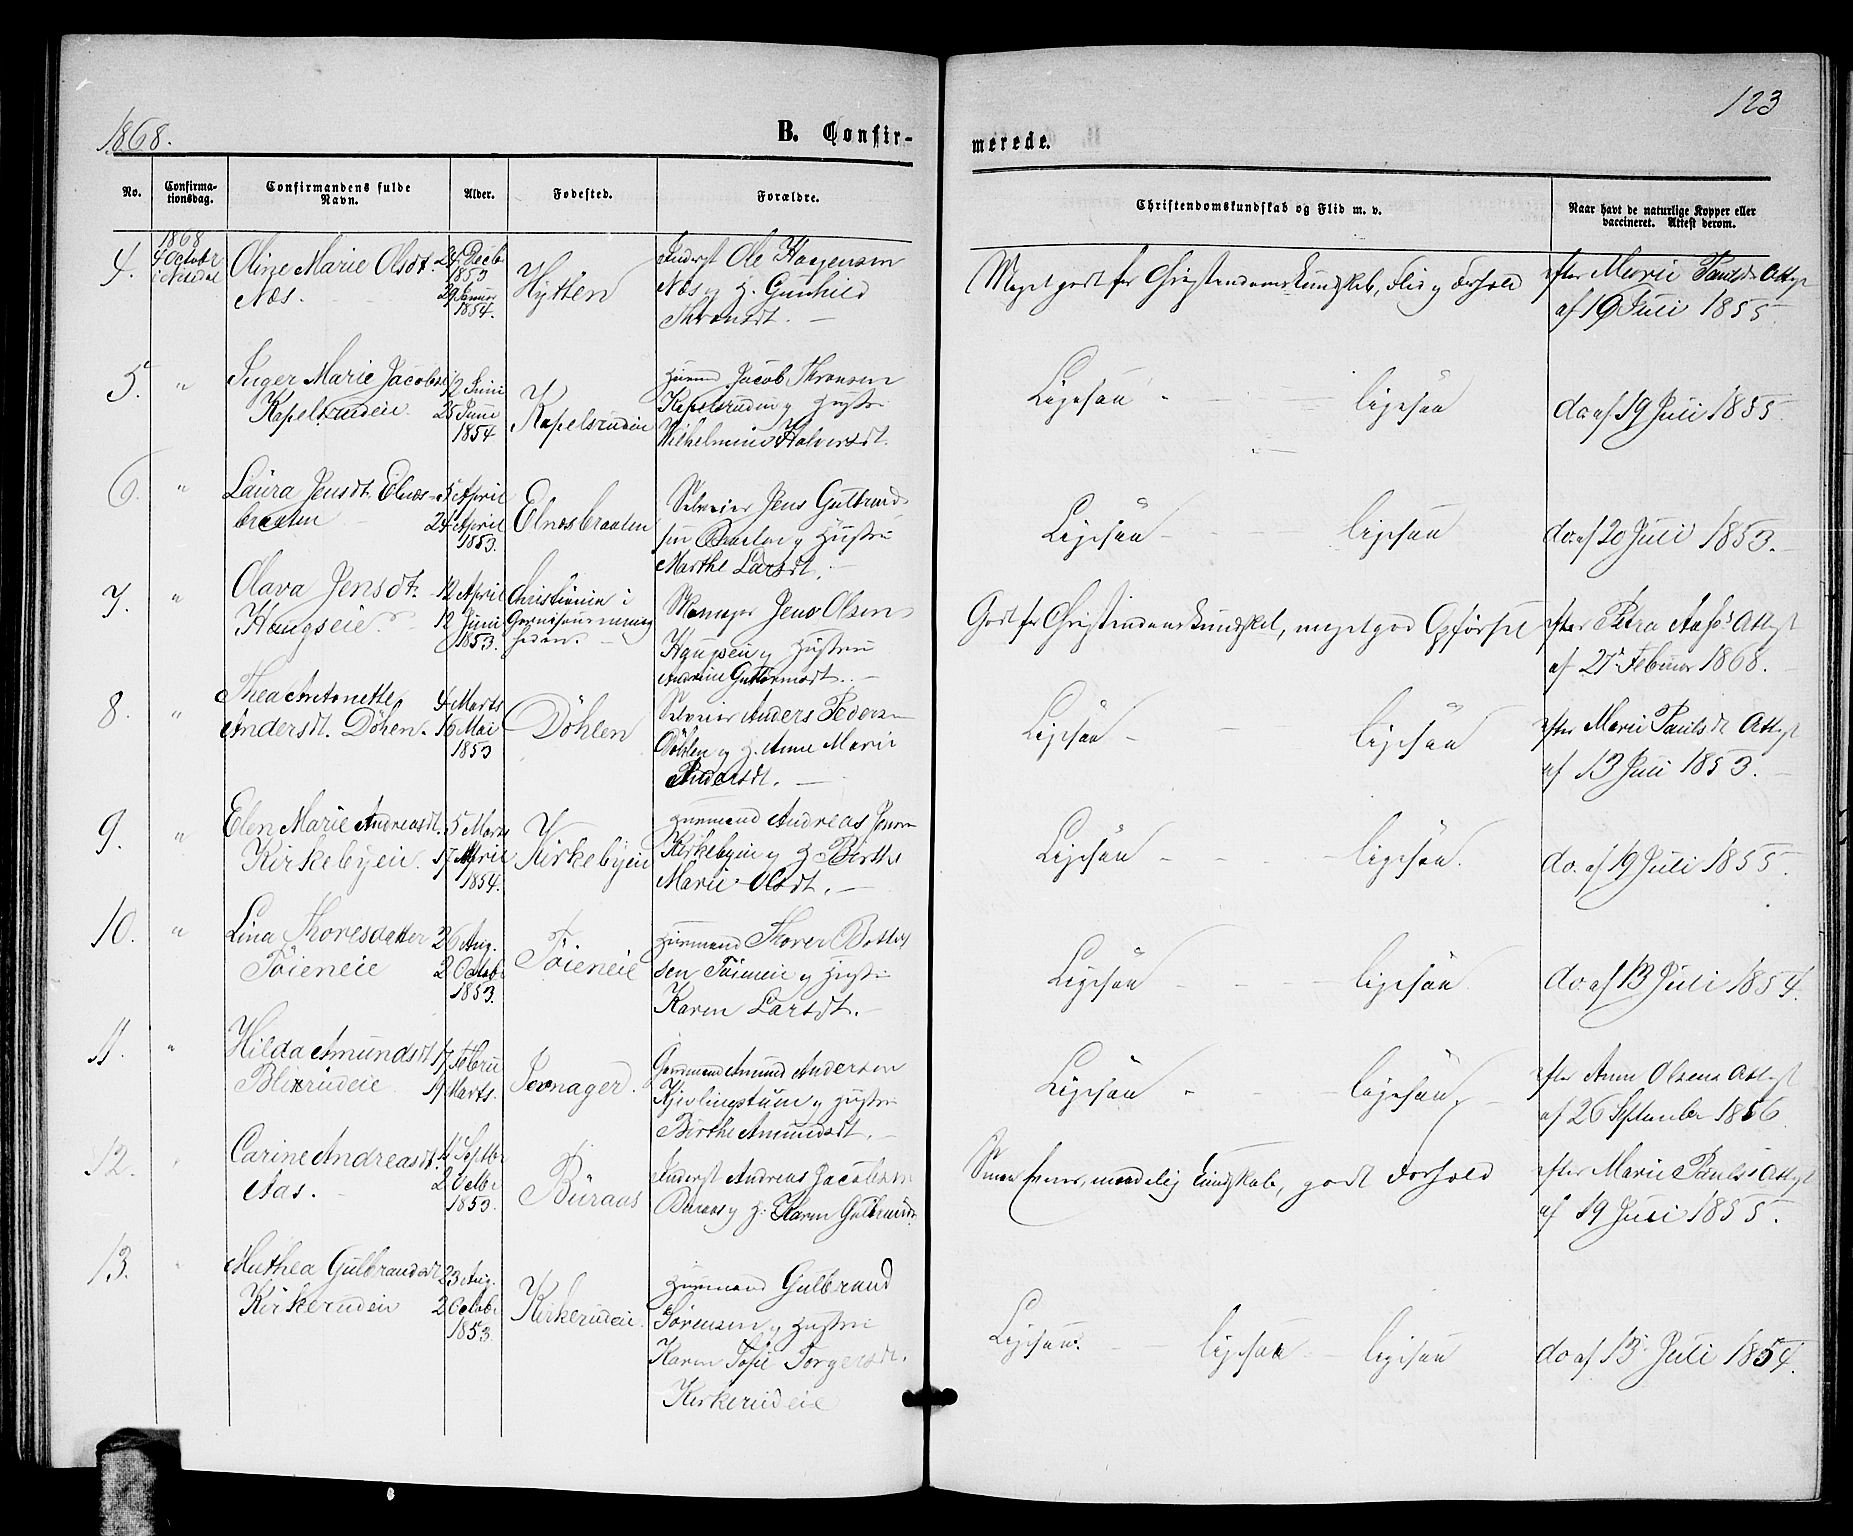 1868.
B. Confir-
merede.
123
No.
Confirma-
tionsdag.
Confirmandens fulde
Navn.
Alder.
Fødested.
Forældre.
Christendomskundskab og Flid m. v.
Naar havt de naturlige Kopper eller
vaccineret. Attest derom.
4.
1868
4 October
Oline Marie Olsdt.
Næs.
24 Decb
1853
29 Januar
1854.
Hytten
Inderst Ole Haagensen
Næs og H. Gunhild
Meget godt for Christendomskundskab, Flid og Forhold
efter Marie Paulsd. Attest
af 19 Juli 1855.
5.
"
Inger Marie Jacobsdt
Kapelsrudeie.
12 Juni
25 Juni
1854
Kapelsrudeie
Huusmd Jacob Thronsen
Kapelsrudeie og Hustru
Wilhelmine Halvorsdt.
Ligesaa - ligesaa
do af 19 Juli 1855.
6.
"
Laura Jensdt. Elnes-
braaten
5 April
24 April
1853.
Elnesbraaten
Selveier Jens Gulbrand-
sen Braaten og Hustru
Marthe Larsdt.
Ligesaa - ligesaa
do. af 20 Juli 1853.
7.
"
Olava Jensdt.
Haugseie.
12 April
12 Juni
1853.
Christiania i
Skomager Jens Olsen
Haugseie og Hustru
Andrine Guttormsdt.
Godt for Christendomskundskab, meget god Opførsel
efter Petra Aas's Attest
af 27 Februar 1868.
8.
"
Thea Antonette
Andersdt. Döhlen.
4 Marts
16 Mai
1853
Döhlen
Selveier Anders Pedersen
Döhlen og H. Anne Marie
Andersdt.
Ligesaa - ligesaa
efter Marie Paulsdt Attest
af 13 Juli 1853.
9.
"
Elen Marie Andreasdt.
Kirkebyeie.
5 Marts
17 April
1854.
Kirkebyeie
Huusmand Andreas Jensen
Kirkebyeie og H. Birthe
Marie Olsdt.
Ligesaa - ligesaa.
do. af 19 Juli 1855.
10.
"
Lina Thoresdatter
Töieneie
26 Aug.
2 Octob.
1853.
Töieneie
Huusmand Thorer Bottolf-
sen Töieneie og Hustru
Karen Larsdt.
Ligesaa - ligesaa
do. af 13 Juli 1854.
11.
"
Hilda Amundsdt.
Blixrudeie
17 Febru
19 Marts.
Gaardmand Amund Andersen
Kjevlingstuen og Hustru
Birthe Amundsdt.
Ligesaa - ligesaa
efter Anne Olsens Attest
af 26 September 1856
12.
Carine Andreasdt.
Aas.
Septbr
2 Octbr
1853.
Büraas
Inderst Andreas Jacobsen
Buraas og H. Karen Gulbrandsd.
Smaa Evner, maadelig Kundskab, godt Forhold
efter Marie Pauls's Attest
af 19 Juli 1855.
13.
Mathea Gulbrandsdt
Kirkerudeie
23 Aug.
2 Octob.
1853.
Kirkerudeie
Huusmand Gulbrand
Sörensen og Hustru
Karen Sofie Torgersdt.
Kirkerudeie
Ligesaa. - ligesaa - ligesaa
do af 13 Juli 1854.